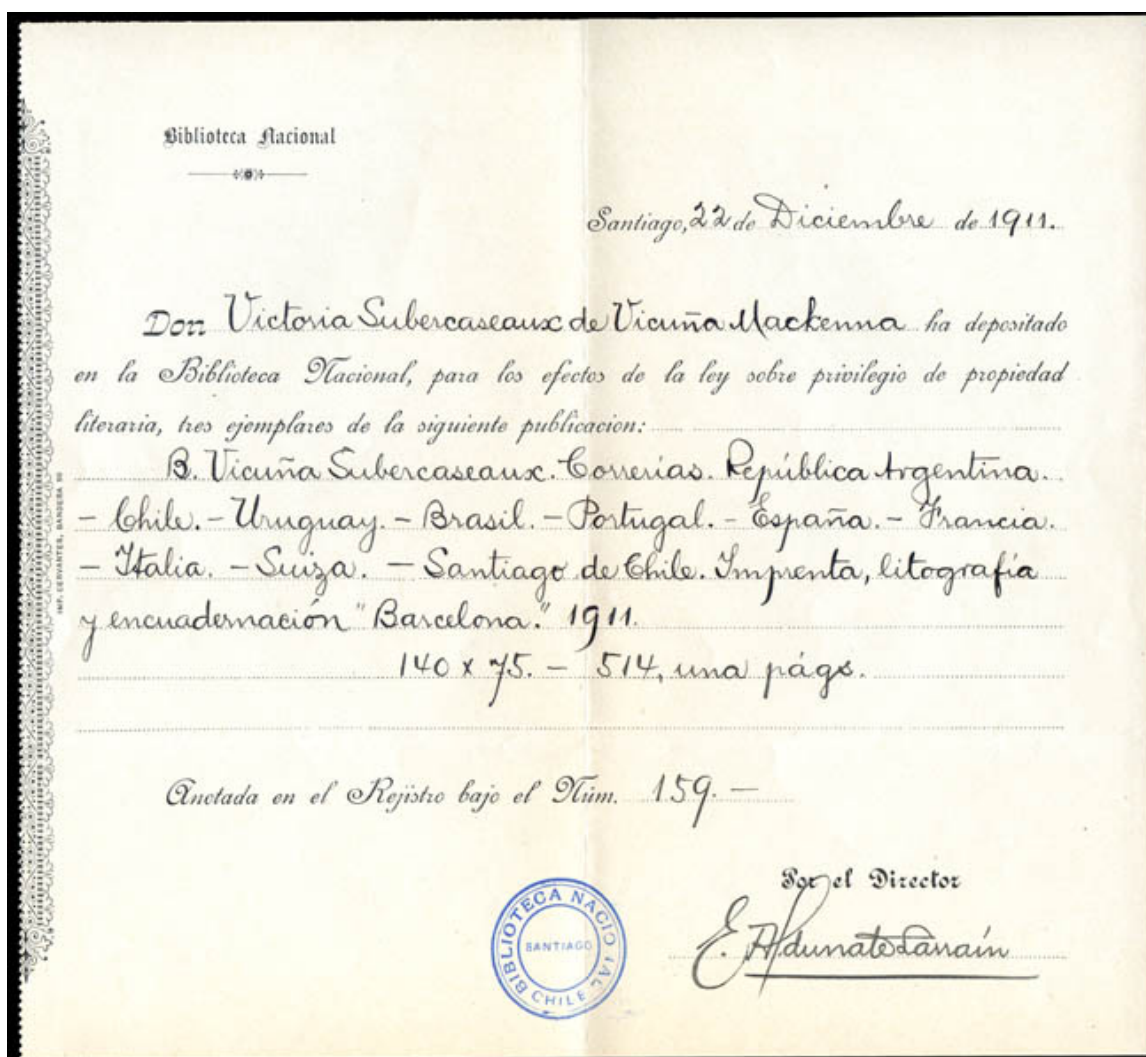 Biblioteca Nacional
Santiago, 22 de Diciembre de 1911.
Don Victoria Subercaseaux de Vicuña Mackenna ha depositado
en la Biblioteca Nacional, para los efectos de la ley sobre privilegio de propiedad
literaria, tres ejemplares de la siguiente publicacion:
B. Vicuña Subercaseaux. Correrías. República Argentina.
- Chile. - Uruguay. - Brasil. - Portugal. - España. - Francia.
- Italia. - Suiza. - Santiago de Chile. Imprenta, litografía
y encuadernación "Barcelona." 1911.
140 x 75. - 514, una págs.
Anotada en el Rejistro bajo el Núm. 159. -
Por el Director
E. Aldunate Larraín
BIBLIOTECA NACIONAL
SANTIAGO
CHILE
IMP. CERVANTES, BANDERA 50